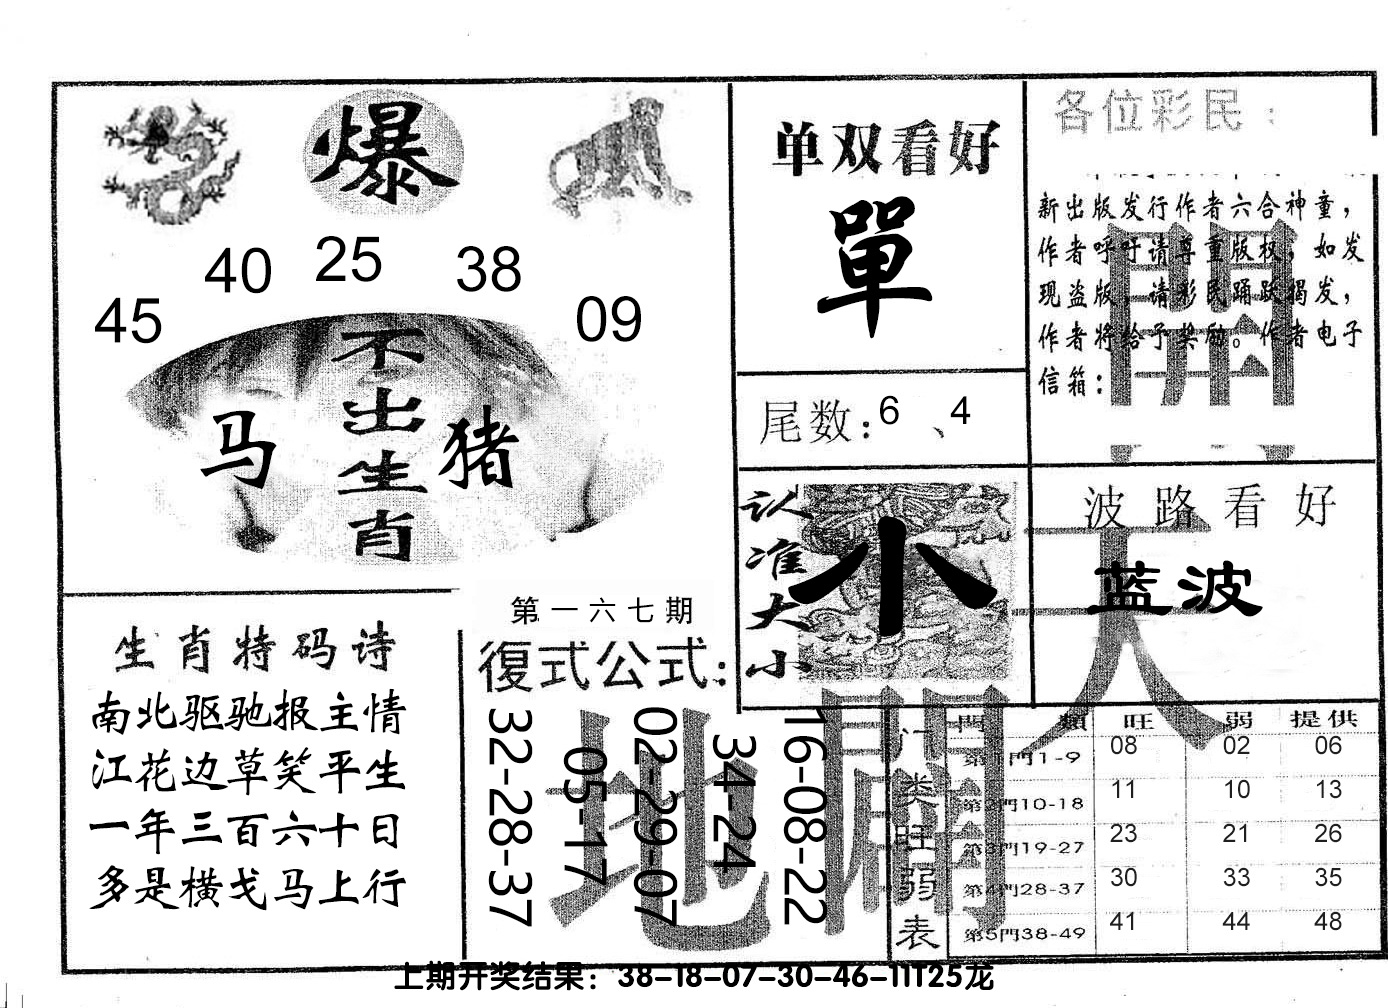 爆
45 40 25 38 09
不出生肖
马 猪
单双看好
單
尾数:6、4
各位彩民:
新出版发行作者六合神童,
作者呼吁请尊重版权,如发
现盗版,请彩民踊跃揭发,
作者将给予奖励。作者电子
信箱:
認准大小
小
波路看好
蓝波
生肖特码诗
南北驱驰报主情
江花边草笑平生
一年三百六十日
多是横戈马上行
第一六七期
復式公式:
32-28-37
05-17
02-29-07
34-24
16-08-22
天地開
門類旺弱表
門 類 旺 弱 提供
第1門1-9 08 02 06
第2門10-18 11 10 13
第3門19-27 23 21 26
第4門28-37 30 33 35
第5門38-49 41 44 48
上期开奖结果:38-18-07-30-46-11T25龙